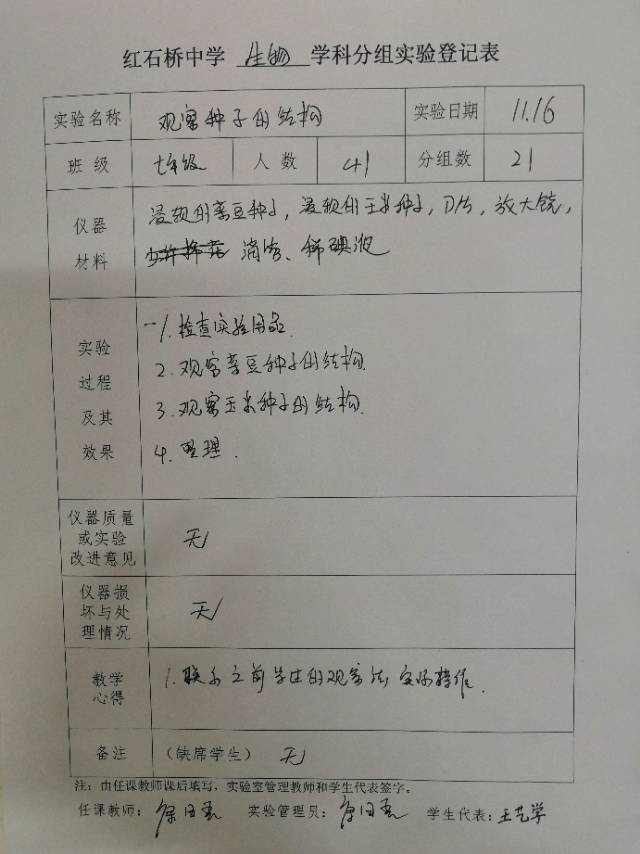 红石桥中学 生物 学科分组实验登记表
实验名称 观察种子的结构 实验日期 11.16
班级 七年级 人数 41 分组数 21
仪器 浸软的菜豆种子，浸软的玉米种子，刀片，放大镜，
材料 滴管、稀碘液
实验 一1.检查实验用品
过程 2.观察菜豆种子的结构
及其 3.观察玉米种子的结构
效果 4.整理.
仪器质量
或实验 无
改进意见
仪器损
坏与处 无
理情况
教学 1.联系之前学过的观察法，实际操作.
心得
备注 （缺席学生） 无
注：由任课教师课后填写，实验室管理教师和学生代表签字。
任课教师： 实验管理员： 学生代表：王艺学